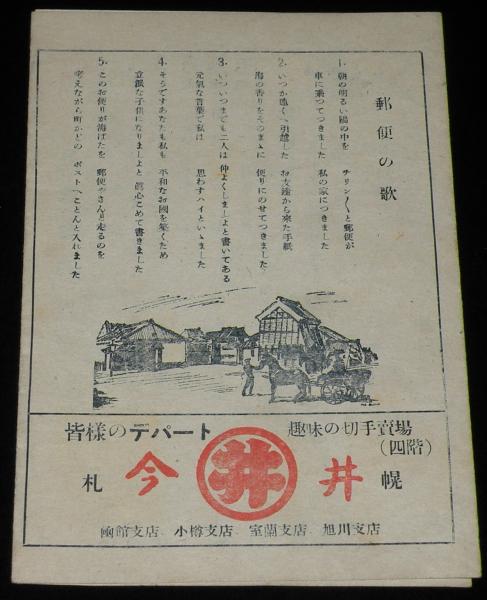 郵便の歌
1. 朝の明るい陽の中を　チリン〱と郵便が
車に乗つてつきました　私の家につきました
2. いつか遠くへ引越した　お友達から来た手紙
海の香りをそのまゝに　便りにのせてつきました
3. いついつまでも二人は　仲よくしましよと書いてある
元氣な言葉で私は　思わずハイといゝました
4. そうですあなたも私も　平和なお國を築くため
立派な子供になりましよと　眞心こめて書きました
5. このお便りが海ばたを　郵便やさんと走るのを
考えながら町かどの　ポストへことんと入れました
皆様のデパート　趣味の切手賣場
(四階)
札　今井　幌
井
函館支店　小樽支店　室蘭支店　旭川支店